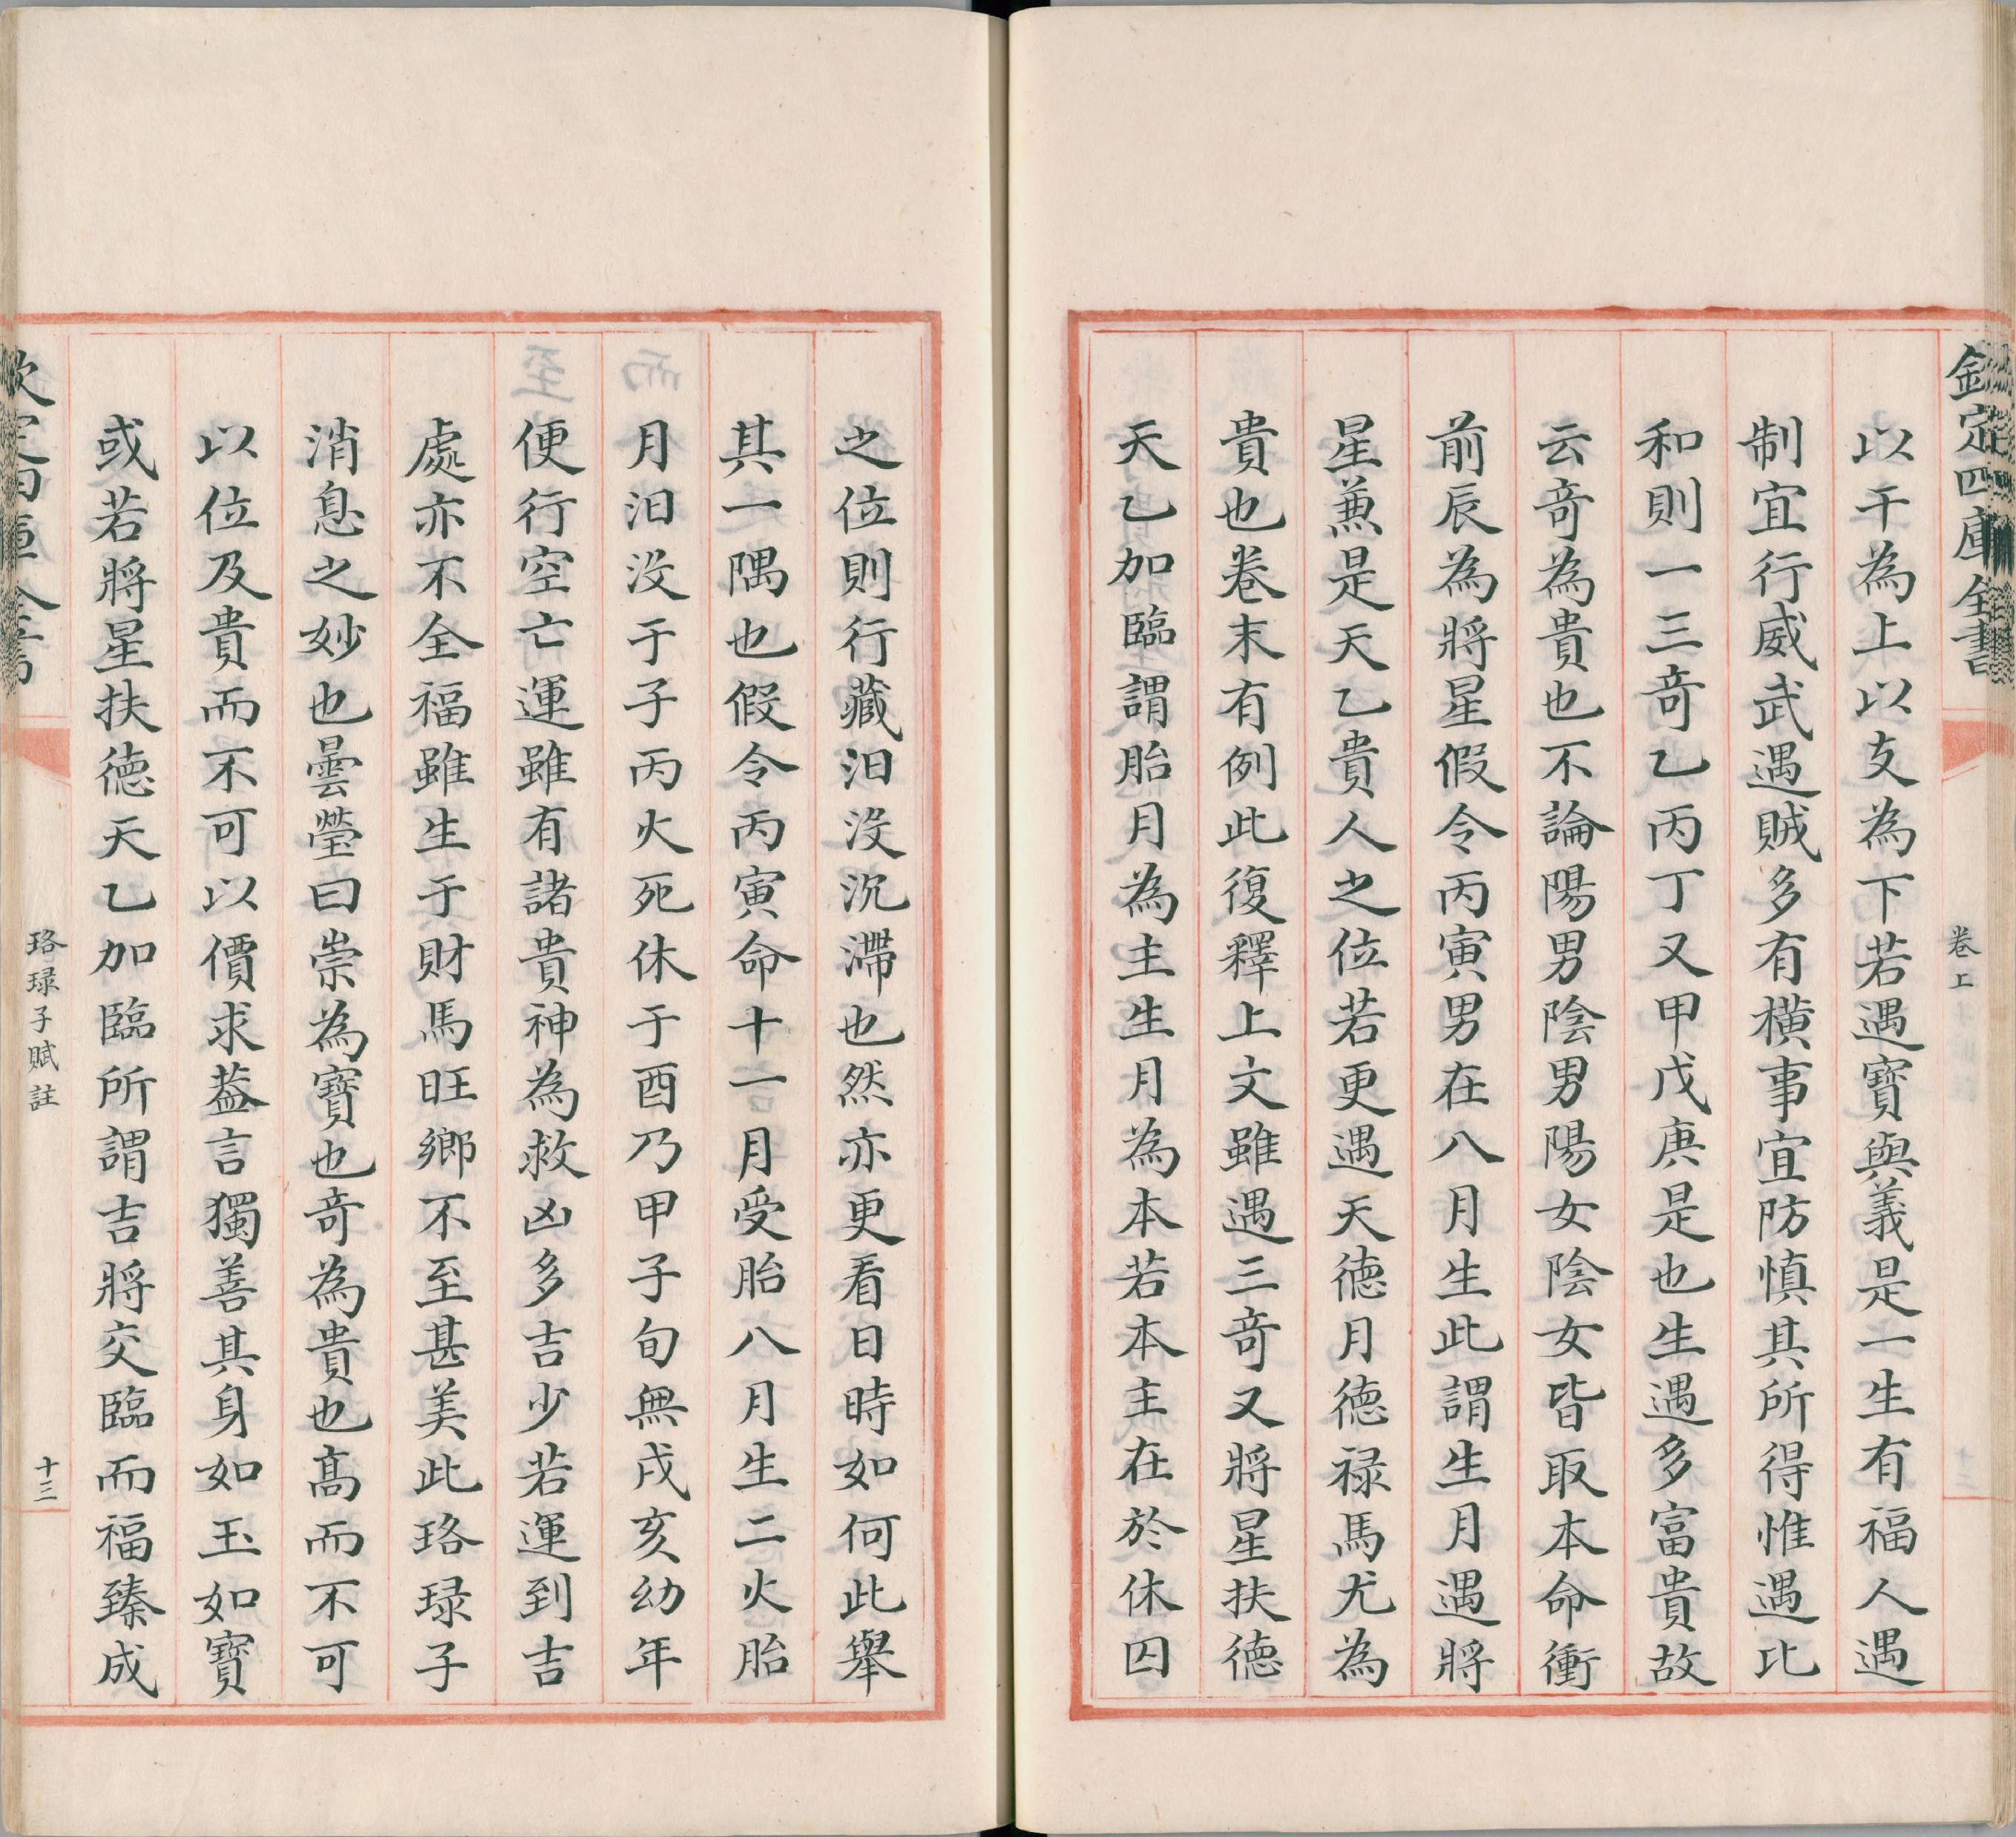 欽定四庫全書
卷上
以干為上以支為下若遇寶與義是一生有福人遇
制宜行威武遇賊多有横事宜防慎其所得惟遇比
和則一三竒乙丙丁又甲戊庚是也生遇多富貴故
云竒為貴也不論陽男陰男陽女陰女皆取本命衝
前辰為將星假令丙寅男在八月生此謂生月遇將
星兼是天乙貴人之位若更遇天德月德禄馬尤為
貴也卷末有例此復釋上文雖遇三竒又將星扶德
天乙加臨謂胎月為主生月為本若本主在於休囚
之位則行藏汨没沉滯也然亦更看日時如何此舉
其一隅也假令丙寅命十一月受胎八月生二火胎
月汨没于子丙火死休于酉乃甲子旬無戌亥幼年
便行空亡運雖有諸貴神為救凶多吉少若運到吉
處亦不全福雖生于財馬旺鄉不至甚美此珞琭子
消息之妙也曇瑩曰崇為寶也竒為貴也髙而不可
以位及貴而不可以價求葢言獨善其身如玉如寶
或若將星扶德天乙加臨所謂吉將交臨而福臻成
欽定四庫全書
珞琭子賦註
十三